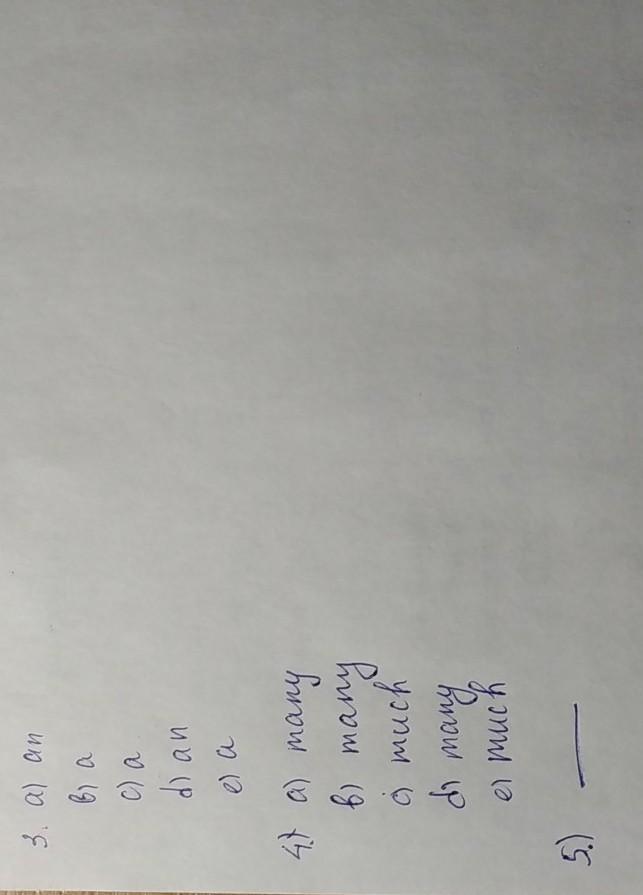 3. a) an
b) a
c) a
d) an
e) a
4) a) many
b) many
c) much
d) many
e) much
5.) —